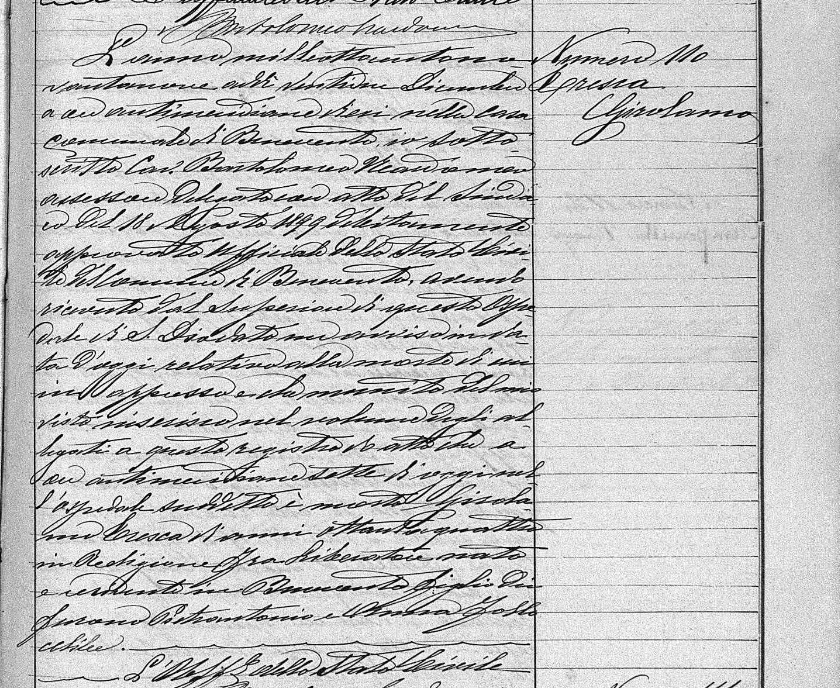 Bartolomeo
L'anno milleottocentono
vantanove addì ventidue Dicembre
a ore antimeridiane dieci nella Casa
comunale di Benevento, io sotto
scritto Cav. Bartolomeo
assessore delegato con atto del Sinda
co del 18 Agosto 1899 debitamente
approvato Ufficiale dello Stato Civi
le del Comune di Benevento, avendo
ricevuto dal Superiore di questo Ospe
dale di S. Diodato un avviso in da
ta d'oggi relativo alla morte di cui
in appresso e che munito del mio
visto inserisco nel volume degli al
legati a questo registro do atto che a
ore antimeridiane sette di oggi nel
l'ospedale suddetto è morto Girola
mo Cresca di anni ottantaquattro
in Religione Fra nato
e residente in Benevento figlio dei
furono Pietrantonio e
celibe.
L'Uff. dello Stato Civile
Numero 110
Cresca
Girolamo